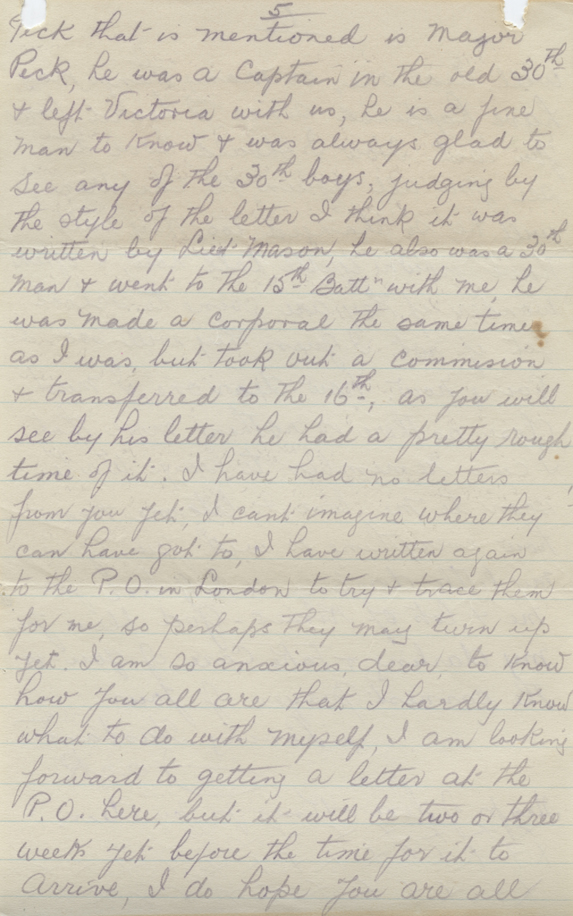 5
Peck that is mentioned is Major
Peck, he was a Captain in the old 30th
& left Victoria with us, he is a fine
man to know & was always glad to
see any of the 30th boys, judging by
the style of the letter I think it was
written by Lieut Mason, he also was a 30th
man & went to the 15th Battn with me, he
was made a corporal the same time
as I was, but took out a commision
& transferred to the 16th, as you will
see by his letter he had a pretty rough
time of it. I have had no letters
from you yet, I cant imagine where they
can have got to, I have written again
to the P.O. in London to try & trace them
for me, so perhaps they may turn up
yet. I am so anxious, dear, to know
how you all are that I hardly know
what to do with myself, I am looking
forward to getting a letter at the
P.O. here, but it will be two or three
weeks yet before the time for it to
arrive, I do hope you are all